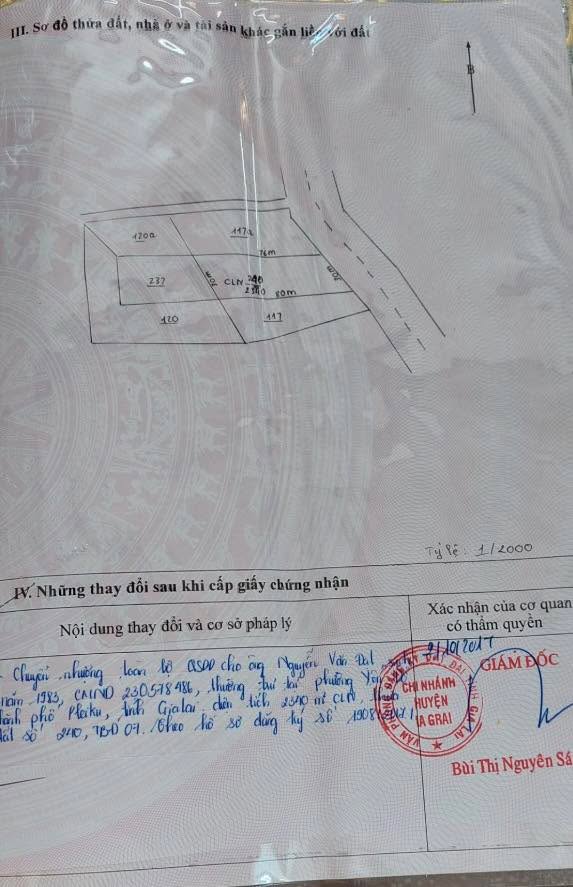 III. Sơ đồ thửa đất, nhà ở và tài sản khác gắn liền với đất
B
120a
117a
76m
30m
237
30m
CLN 240
2340
80m
120
117
Tỷ lệ: 1/2000
IV. Những thay đổi sau khi cấp giấy chứng nhận
Nội dung thay đổi và cơ sở pháp lý
Xác nhận của cơ quan
có thẩm quyền
Chuyển nhường toàn bộ QSDĐ cho ông Nguyễn Văn Đạt
năm 1983, CMND 230578486, thường trú tại phường Yên
thành phố Pleiku, tỉnh Gialai diện tích 2340 m² CLN, thửa
đất số 240, TBĐ 07. Theo hồ sơ đăng ký số 1908
/10/2017
GIÁM ĐỐC
VĂN PHÒNG ĐĂNG KÝ ĐẤT ĐAI TỈNH GIA LAI
CHI NHÁNH
HUYỆN
IA GRAI
Bùi Thị Nguyên